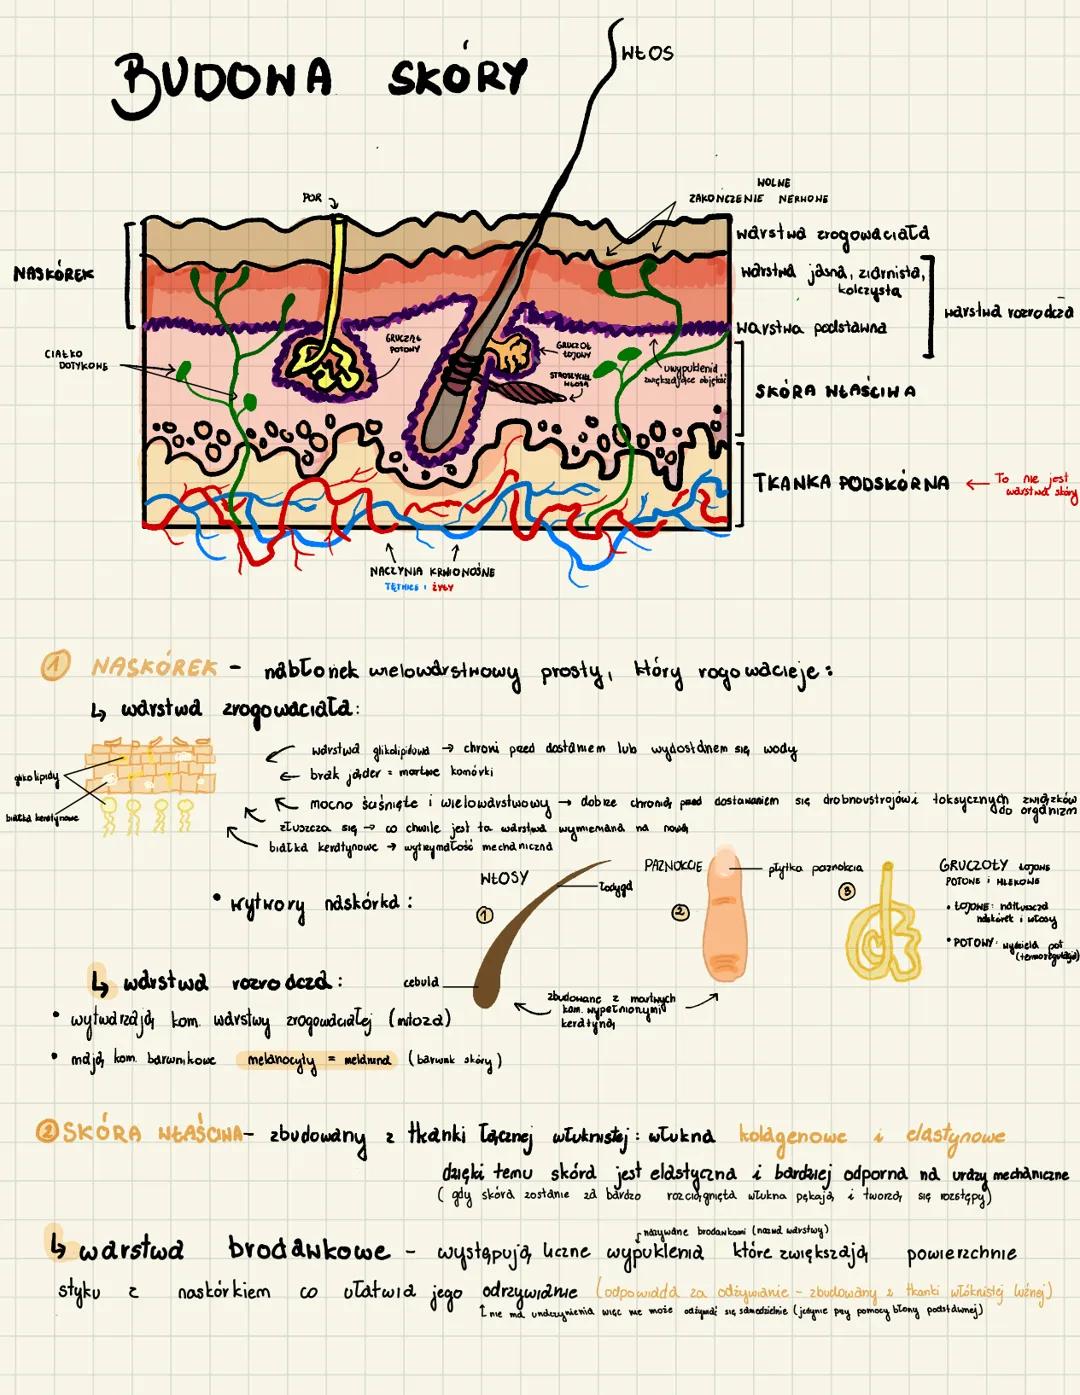 BUDOWA SKÓRY
WŁOS
WOLNE
ZAKOŃCZENIE NERWOWE
POR
warstwa zrogowaciała
NASKÓREK
warstwa jasna, ziarnista,
kolczysta
warstwa rozrodcza
warstwa podstawna
GRUCZOŁ
POTOWY
GRUCZOŁ
ŁOJOWY
CIAŁKO
DOTYKOWE
uwypuklenia
zwiększające objętość
WŁOSA
SKÓRA WŁAŚCIWA
TKANKA PODSKÓRNA ← To nie jest
warstwa skóry
NACZYNIA KRWIONOŚNE
TĘTNICE i ŻYŁY
1 NASKÓREK - nabłonek wielowarstwowy prosty, który rogowacieje:
↳ warstwa zrogowaciała:
warstwa glikolipidowa → chroni przed dostaniem lub wydostanem się wody
glikolipidy
← brak jąder = martwe komórki
mocno ściśnięte i wielowarstwowy → dobrze chronią przed dostawaniem się drobnoustrojów i toksycznych związków
do organizm
białka keratynowe
złuszcza się → co chwile jest ta warstwa wymieniana na nową
białka keratynowe → wytrzymałość mechaniczna
• wytwory naskórka:
WŁOSY
1
łodyga
cebula
PAZNOKCIE
2
płytka paznokcia
3
GRUCZOŁY ŁOJOWE
POTOWE i MLEKOWE
• ŁOJOWE: natłuszcza
naskórek i włosy
• POTOWY: wydziela pot
(termoregulacja)
zbudowane z martwych
kom. wypełnionymi
keratyną
↳ warstwa rozrodcza:
• wytwarzają kom. warstwy zrogowaciałej (mitoza)
• mają kom. barwnikowe melanocyty = melanina (barwnik skóry)
2 SKÓRA WŁAŚCIWA- zbudowany z tkanki łącznej włóknistej: włukna kolagenowe i elastynowe
dzięki temu skóra jest elastyczna i bardziej odporna na urazy mechaniczne
(gdy skóra zostanie za bardzo rozciągnięta włukna pękają i tworzą się rozstępy)
nazywane brodawkami (nazwa warstwy)
↳ warstwa brodawkowe - występują liczne wypuklenia które zwiększają powierzchnie
styku z naskórkiem co ułatwia jego odrzywianie (odpowiada za odżywianie - zbudowany z tkanki włóknistej luźnej)
nie ma unaczynienia więc nie może odżywiać się samodzielnie (jedynie przy pomocy błony podstawnej)